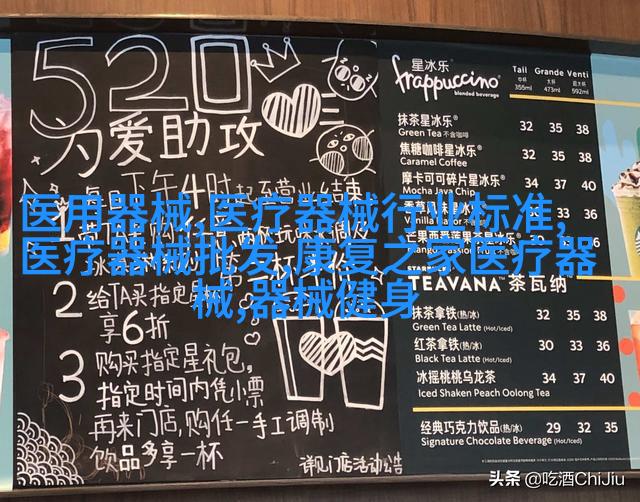 520
为爱助攻
每日下午4时起至营业结束
2 给TA买指定星
享6折
3 购买指定星礼包,
指定时间内凭小票
再来门店,购任一手工调制
饮品多享一杯
详见门店活动公告
星冰乐®
frappuccino®
blended beverage
Tall Grande Venti
中杯 大杯 超大杯
355ml 473ml 592ml
抹茶星冰乐® 32 35 38
Green Tea 不含咖啡
焦糖咖啡星冰乐® 32 35 38
Caramel Coffee
摩卡可可碎片星冰乐® 34 37 40
Mocha Java Chip
33 36
36 39
TEAVANA™ 茶瓦纳
抹茶拿铁(热/冰) 32 35 38
Green Tea Latte (Hot/Iced)
红茶拿铁(热/冰) 30 33 36
Black Tea Latte (Hot/Iced)
冰摇桃桃乌龙茶 34 37 40
Iced Shaken Peach Oolong Tea
经典巧克力饮品(热/冰) 29 32 35
Signature Chocolate Beverage (Hot/Iced)
医用器械,医疗器械行业标准,
医疗器械批发,康复之家医疗器
械,器械健身
头条 @吃酒ChiJiu